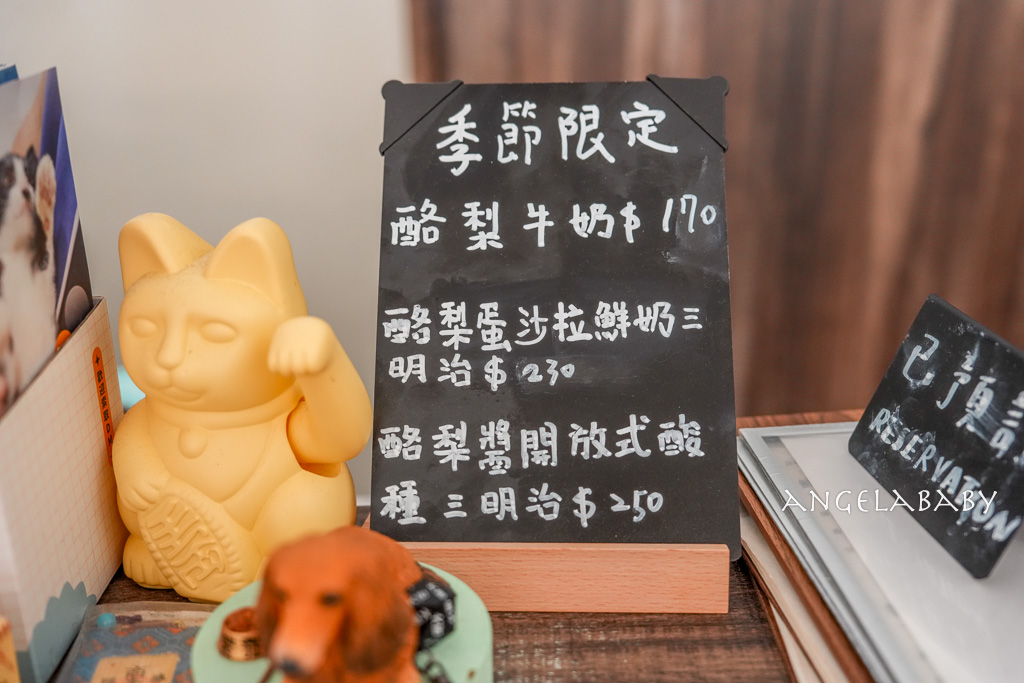 季節限定
酪梨牛奶$170
酪梨蛋沙拉鮮奶三
明治$230
酪梨醬開放式酸
種三明治$250
已預
RESERVATION
ANGELABABY